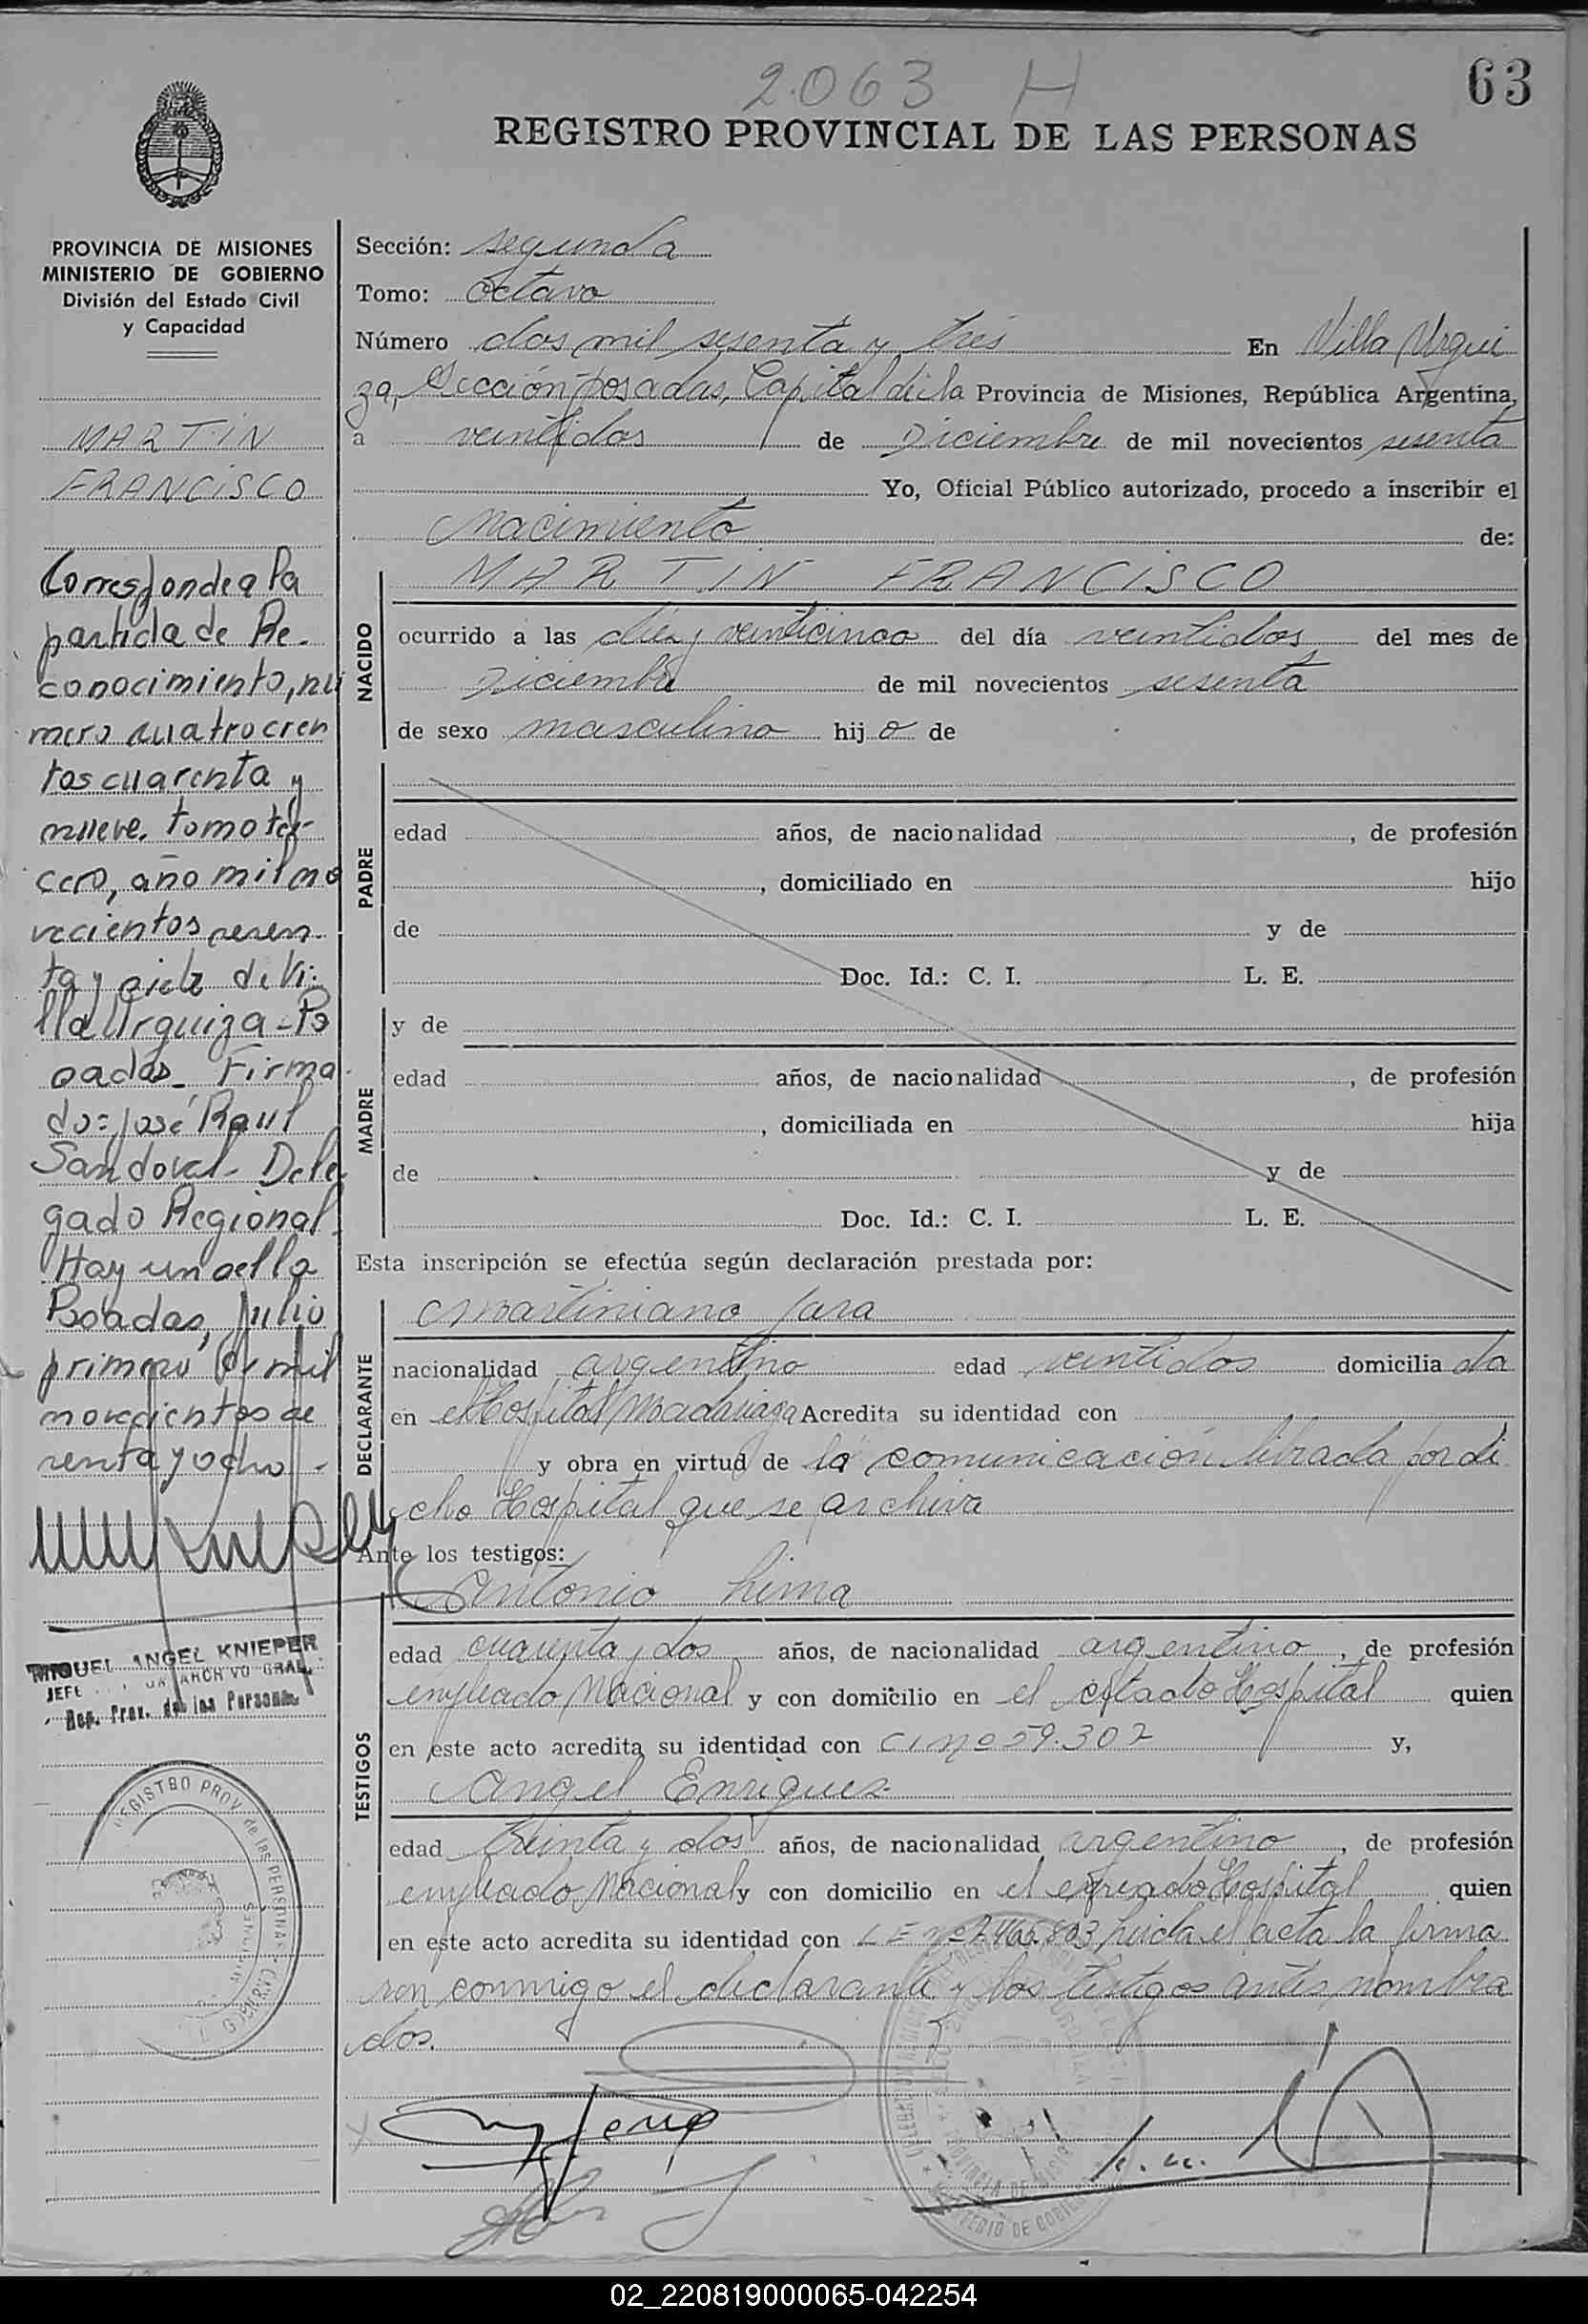 2063 H
63
REGISTRO PROVINCIAL DE LAS PERSONAS
PROVINCIA DE MISIONES
MINISTERIO DE GOBIERNO
División del Estado Civil
y Capacidad
MARTIN
FRANCISCO
Corresponde a la
partida de Re-
conocimiento, nu
mero cuatrocien
tos cuarenta y
nueve, tomo ter-
cero, año mil no
vecientos sesen-
ta y siete de Vi-
lla Urquiza - Po
sadas - Firma
do: José Raul
Sandoval - Dele
gado Regional -
Hay un sello
Posadas, Julio
primero de mil
novecientos se
senta y ocho -
MIGUEL ANGEL KNIEPER
JEFE ARCHIVO GRAL.
Reg. Prov. de las Personas
REGISTRO PROV. de las PERSONAS
Sección: segunda
Tomo: Octavo
Número dos mil sesenta y tres En Villa Urqui
za, Sección Posadas, Capital de la Provincia de Misiones, República Argentina,
a veintidos de Diciembre de mil novecientos sesenta
Yo, Oficial Público autorizado, procedo a inscribir el
Nacimiento de:
MARTIN FRANCISCO
NACIDO
ocurrido a las diez y veinticinco del día veintidos del mes de
Diciembre de mil novecientos sesenta
de sexo masculino hijo de
PADRE
edad años, de nacionalidad , de profesión
, domiciliado en hijo
de y de
Doc. Id.: C. I. L. E.
MADRE
y de
edad años, de nacionalidad , de profesión
, domiciliada en hija
de y de
Doc. Id.: C. I. L. E.
Esta inscripción se efectúa según declaración prestada por:
DECLARANTE
Martiniano Jara
nacionalidad argentino edad veintidos domicilia da
en el Hospital Madariaga Acredita su identidad con
y obra en virtud de la comunicación librada por di
cho Hospital que se archiva
Ante los testigos:
TESTIGOS
Antonio Lima
edad cuarenta y dos años, de nacionalidad argentino, de profesión
empleado Nacional y con domicilio en el citado Hospital quien
en este acto acredita su identidad con CI nº 59.307 y,
Angel Enriquez
edad treinta y dos años, de nacionalidad argentino, de profesión
empleado Nacional y con domicilio en el expresado Hospital quien
en este acto acredita su identidad con LE nº 7.465.803 leida el acta la firma
ron conmigo el declarante y los testigos antes nombra
dos.
PROVINCIA DE MISIONES
MINISTERIO DE GOBIERNO
02_220819000065-042254